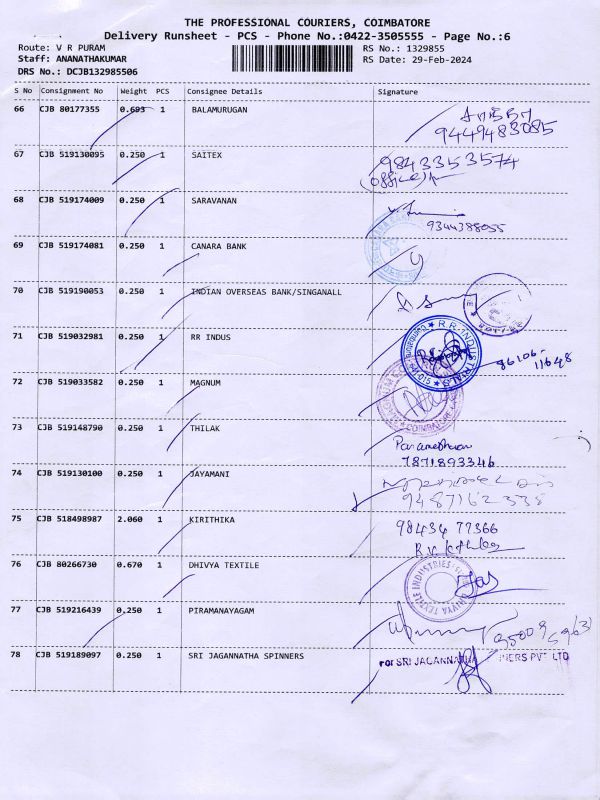 THE PROFESSIONAL COURIERS, COIMBATORE
Delivery Runsheet - PCS - Phone No.:0422-3505555 - Page No.:6
Route: V R PURAM
RS No.: 1329855
Staff: ANANATHAKUMAR
RS Date: 29-Feb-2024
DRS No.: DCJB132985506
S No Consignment No Weight PCS Consignee Details Signature
66 CJB 80177355 0.693 1 BALAMURUGAN
9449483085
67 CJB 519130095 0.250 1 SAITEX 9843353574
(office)
68 CJB 519174009 0.250 1 SARAVANAN
9344388055
69 CJB 519174081 0.250 1 CANARA BANK
70 CJB 519190053 0.250 1 INDIAN OVERSEAS BANK/SINGANALL
71 CJB 519032981 0.250 1 RR INDUS R.R. INDUSTRIALS
96106-
11648
72 CJB 519033582 0.250 1 MAGNUM
73 CJB 519148790 0.250 1 THILAK
Parameshwaran
7871893346
74 CJB 519130100 0.250 1 JAYAMANI
9487162338
75 CJB 518498987 2.060 1 KIRITHIKA 98434 77366
76 CJB 80266730 0.670 1 DHIVYA TEXTILE DHIVYA TEXTILE INDUSTRIES
77 CJB 519216439 0.250 1 PIRAMANAYAGAM
78 CJB 519189097 0.250 1 SRI JAGANNATHA SPINNERS For SRI JAGANNATHA NERS PVT LTD